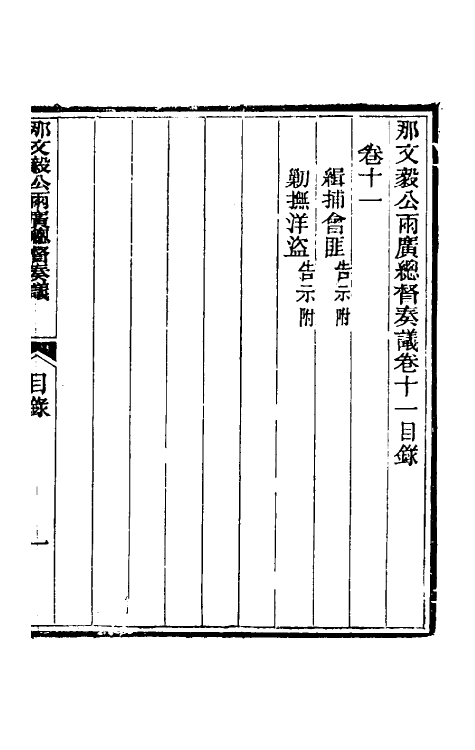 那文毅公兩廣總督奏議卷十一目錄
卷十一
緝捕會匪告示附
勦撫洋盜告示附
那文毅公兩廣總督奏議
目錄
一